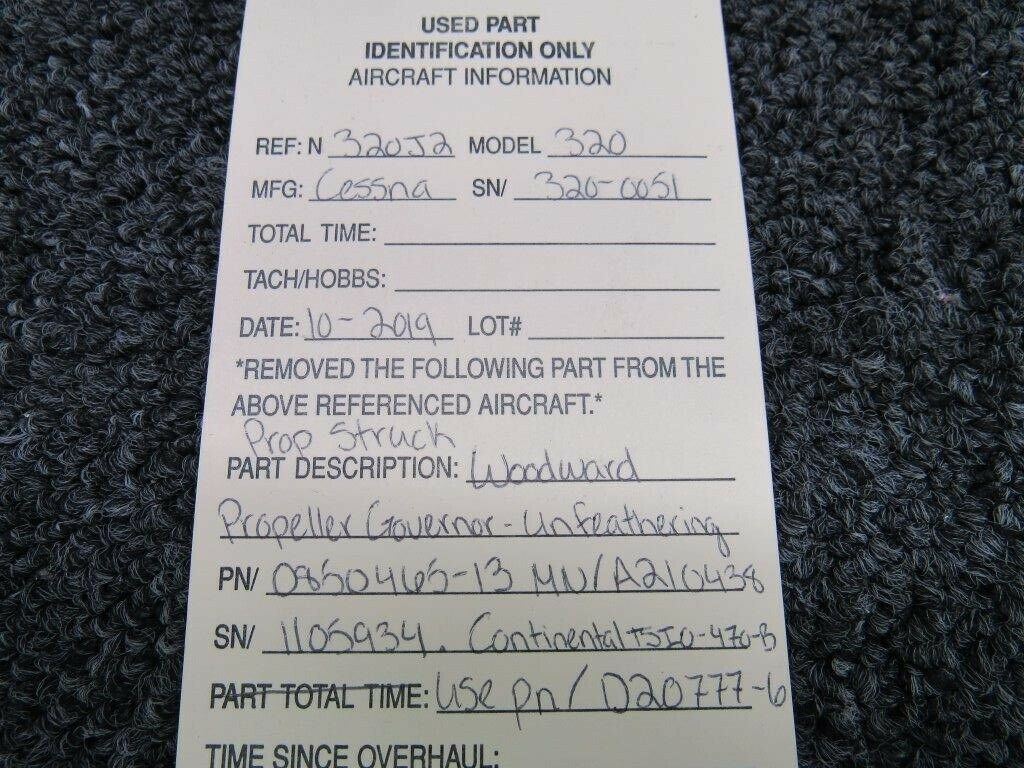 USED PART
IDENTIFICATION ONLY
AIRCRAFT INFORMATION
REF: N 320J2 MODEL 320
MFG: Cessna SN/ 320-0051
TOTAL TIME:
TACH/HOBBS:
DATE: 10-2019 LOT#
*REMOVED THE FOLLOWING PART FROM THE
ABOVE REFERENCED AIRCRAFT.*
Prop Struck
PART DESCRIPTION: Woodward
Propeller Governor-Unfeathering
PN/ 0850465-13 MN/A210438
SN/ 1105934. Continental TSIO-470-B
PART TOTAL TIME: use pn/ D20777-6
TIME SINCE OVERHAUL: